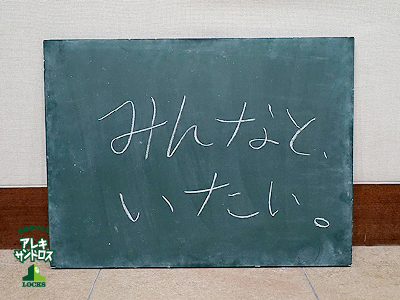 みんなと、
いたい。
アレキ
サンドロス
LOCKS